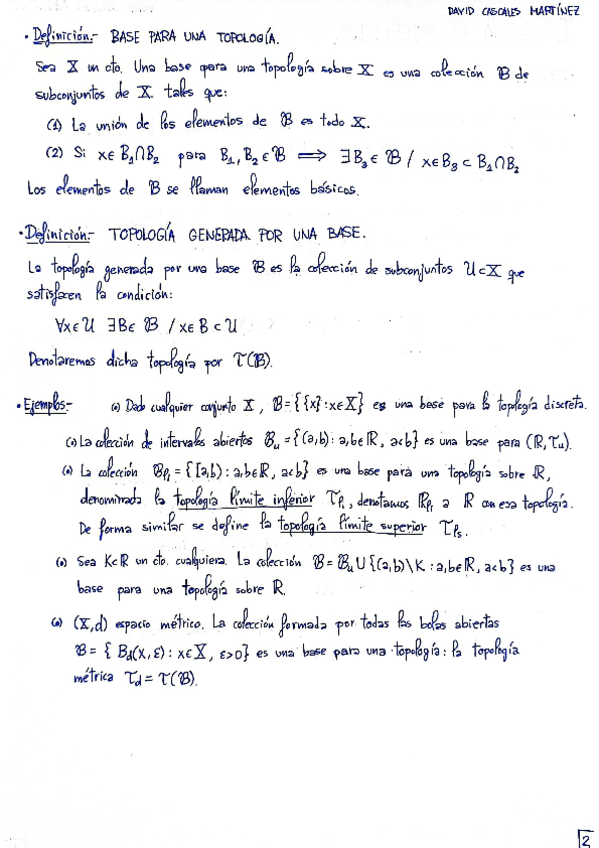 DAVID CASCALES MARTÍNEZ
· Definición:- BASE PARA UNA TOPOLOGÍA.
Sea X un cto. Una base para una topología sobre X es una colección B de
subconjuntos de X tales que:
(1) La unión de los elementos de B es todo X.
(2) Si x∈B₁∩B₂ para B₁,B₂∈B ⟹ ∃B₃∈B / x∈B₃⊂B₁∩B₂
Los elementos de B se llaman elementos básicos.
· Definición:- TOPOLOGÍA GENERADA POR UNA BASE.
La topología generada por una base B es la colección de subconjuntos U⊂X que
satisfacen la condición:
∀x∈U ∃B∈B / x∈B⊂U
Denotaremos dicha topología por τ(B).
· Ejemplos:- (o) Dado cualquier conjunto X, B={{x}:x∈X} es una base para la toplogía discreta.
(o) La colección de intervalos abiertos Bᵤ={(a,b): a,b∈R, a<b} es una base para (R,τᵤ).
(o) La colección Bₗᵢ={[a,b): a,b∈R, a<b} es una base para una topología sobre R,
denominada la topología límite inferior τₗᵢ, denotamos Rₗᵢ a R con esa topología.
De forma similar se define la topología límite superior τₗₛ.
(o) Sea K⊂R un cto. cualquiera. La colección B=Bᵤ∪{(a,b)\K: a,b∈R, a<b} es una
base para una topología sobre R.
(o) (X,d) espacio métrico. La colección formada por todas las bolas abiertas
B={B_d(x,ε): x∈X, ε>0} es una base para una topología: la topología
métrica τ_d=τ(B).
2